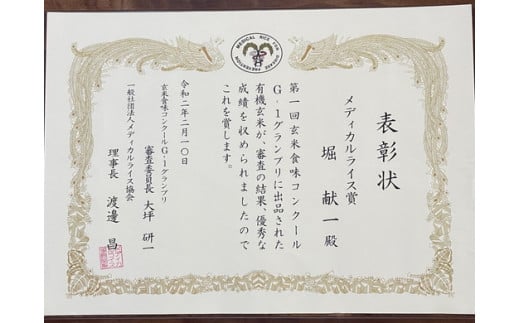 MEDICAL RICE FOR DISEASE PREVENTION
表彰状
メディカルライス賞
堀 献一殿
第一回玄米食味コンクール
G-1グランプリに出品された
有機玄米が、審査の結果、優秀な
成績を収められましたので
これを賞します。
令和二年二月一〇日
玄米食味コンクールG-1グランプリ
審査委員長 大坪 研一
一般社団法人メディカルライス協会
理事長 渡邊 昌